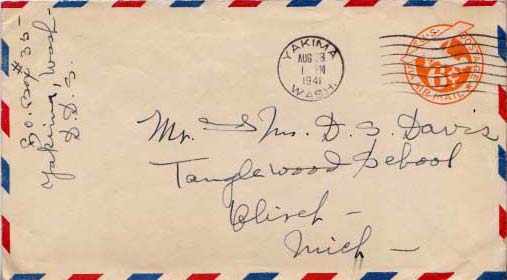 So. Box #35-
Yakima, Wash
D. D. S.
YAKIMA
AUG 28
PM
1941
WASH.
U.S. POSTAGE
6¢
VIA AIR MAIL
Mr. & Mrs. D. S. Davis
Tanglewood School
Olivet -
Mich -